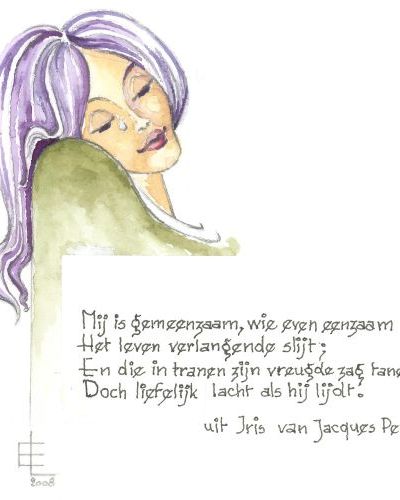 Mij is gemeenzaam, wie even eenzaam
Het leven verlangende slijt;
En die in tranen zijn vreugde zag
Doch liefelijk lacht als hij lijdt.
uit Iris van Jacques Pe
2008